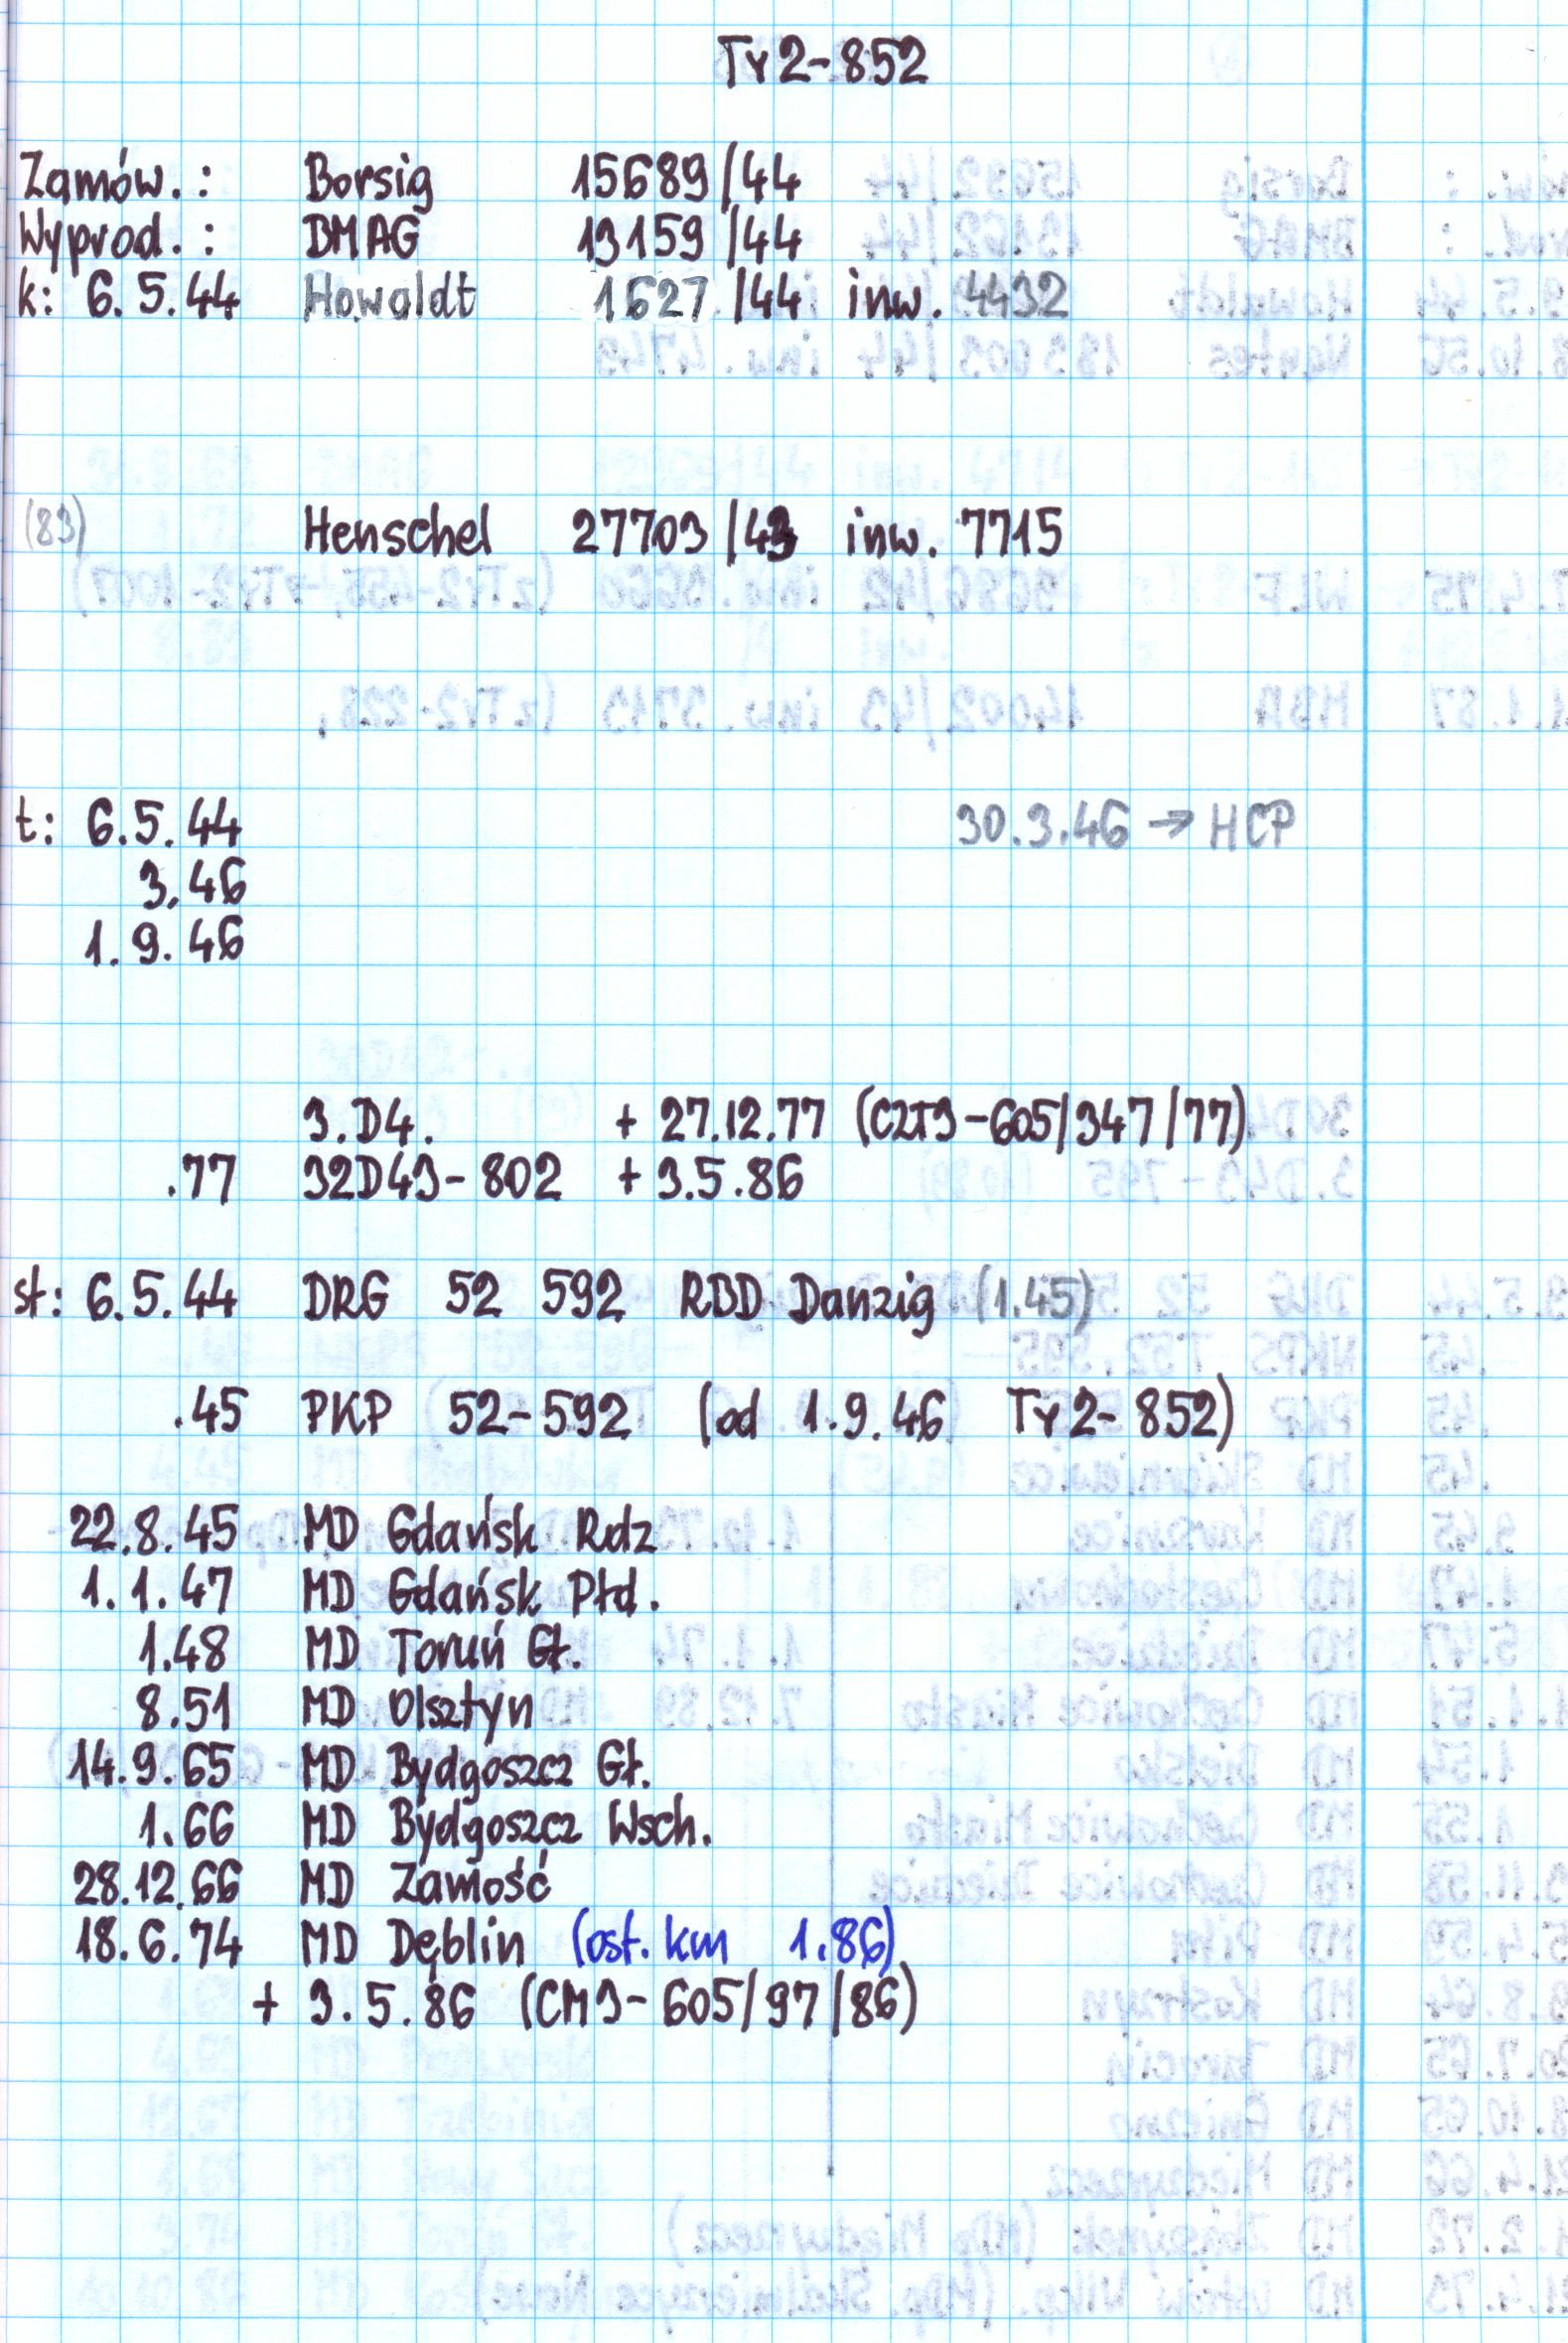 Ty2-852
Zamów.: Borsig 15689/44
Wyprod.: BMAG 13159/44
k: 6.5.44 Howaldt 1627/44 inw. 4432
(83) Henschel 27703/43 inw. 7715
t: 6.5.44 30.3.46 → HCP
3.46
1.9.46
3.D4. + 27.12.77 (CZT3-605/347/77)
.77 32D43-802 + 3.5.86
st: 6.5.44 DRG 52 592 RBD Danzig (1.45)
.45 PKP 52-592 (od 1.9.46 Ty2-852)
22.8.45 MD Gdańsk Rdz
1.1.47 MD Gdańsk Płd.
1.48 MD Toruń Gł.
8.51 MD Olsztyn
14.9.65 MD Bydgoszcz Gł.
1.66 MD Bydgoszcz Wsch.
28.12.66 MD Zamość
18.6.74 MD Dęblin (ost. km 1.86)
+ 3.5.86 (CM3-605/97/86)